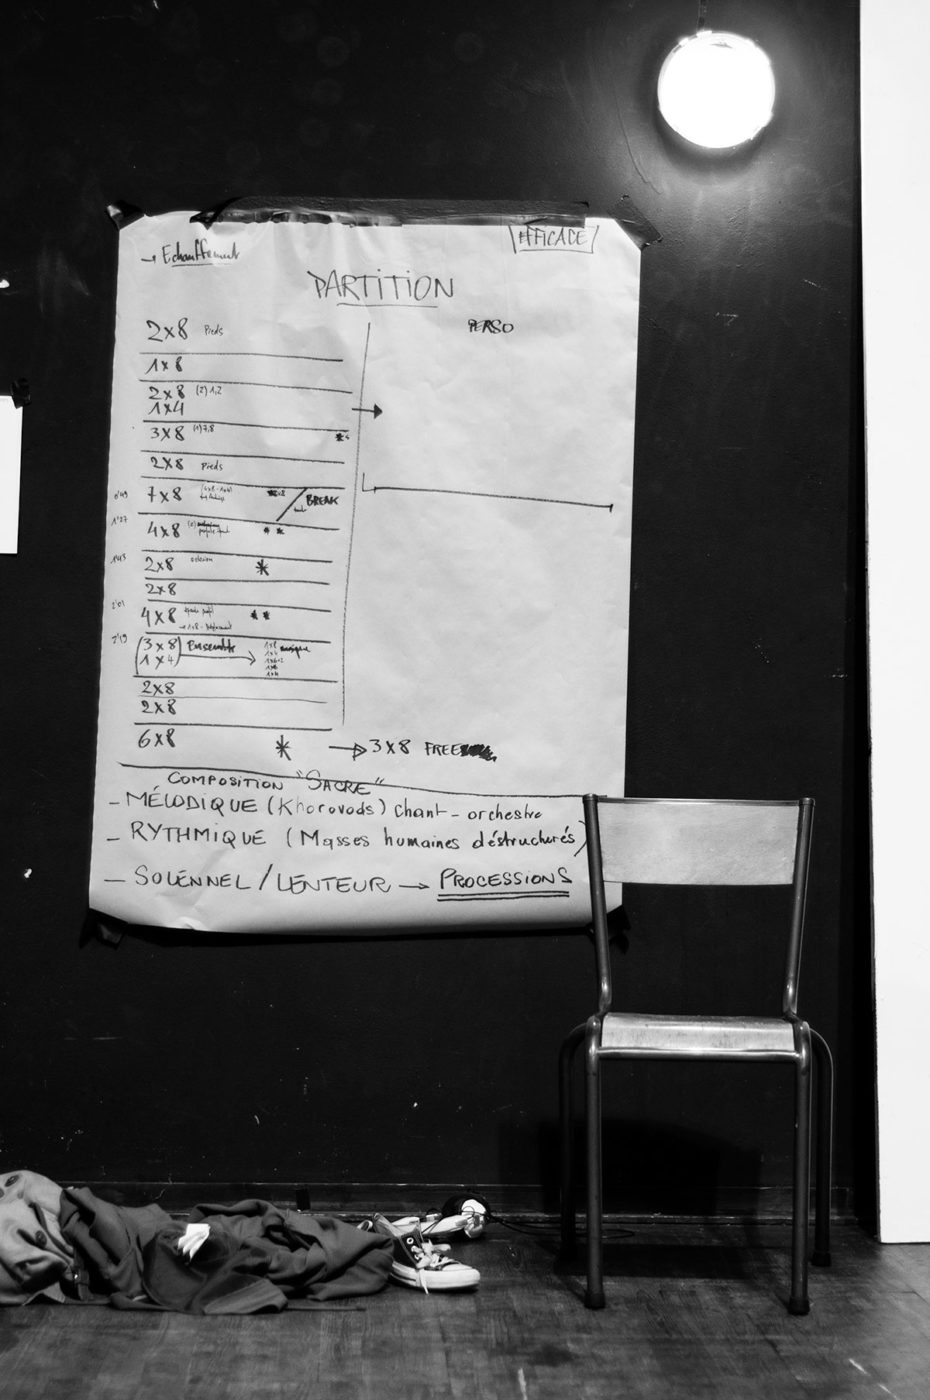 → Echauffement
EFFICACE
PARTITION
PERSO
2x8 Pieds
1x8
2x8 (2) 1,2
1x4
3x8 (1) 7,8
2x8 Pieds
7x8
BREAK
4x8
2x8
2x8
4x8
(3x8) Ensemble
1x4
2x8
2x8
6x8 * → 3x8 FREE
COMPOSITION "SACRE"
- MÉLODIQUE (Khorovods) Chant - orchestre
- RYTHMIQUE (Masses humaines déstructurés)
- SOLENNEL / LENTEUR → PROCESSIONS